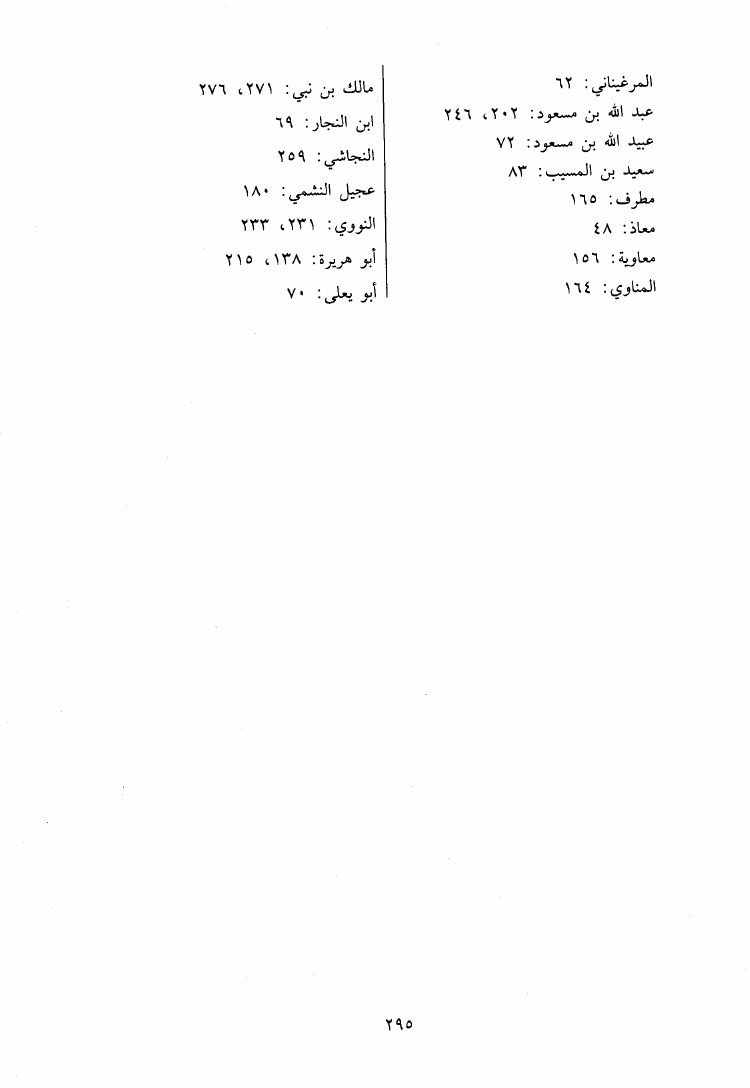 المرغيناني: ٦٢
عبد الله بن مسعود: ٢٠٢، ٢٤٦
عبيد الله بن مسعود: ٧٢
سعيد بن المسيب: ٨٣
مطرف: ١٦٥
معاذ: ٤٨
معاوية: ١٥٦
المناوي: ١٦٤
مالك بن نبي: ٢٧١، ٢٧٦
ابن النجار: ٦٩
النجاشي: ٢٥٩
عجيل النشمي: ١٨٠
النووي: ٢٣١، ٢٣٣
أبو هريرة: ١٣٨، ٢١٥
أبو يعلى: ٧٠
٢٩٥